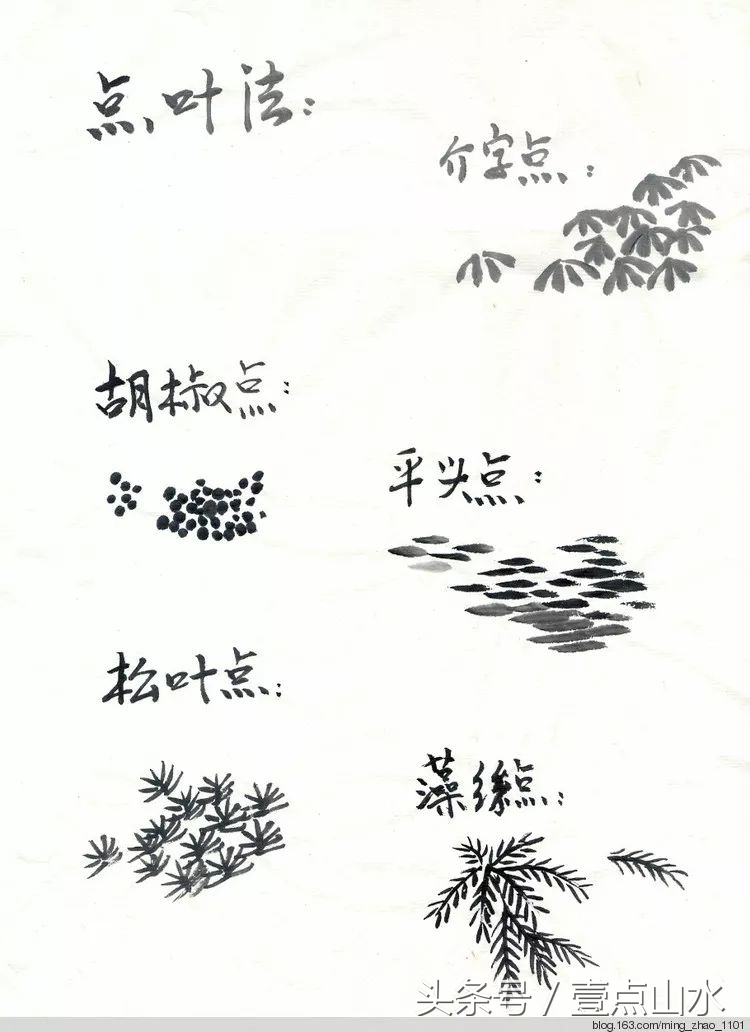 点叶法：
介字点：
胡椒点：
平头点：
松叶点：
藻丝点：
头条号 / 壹点山水
blog.163.com/ming_zhao_1101